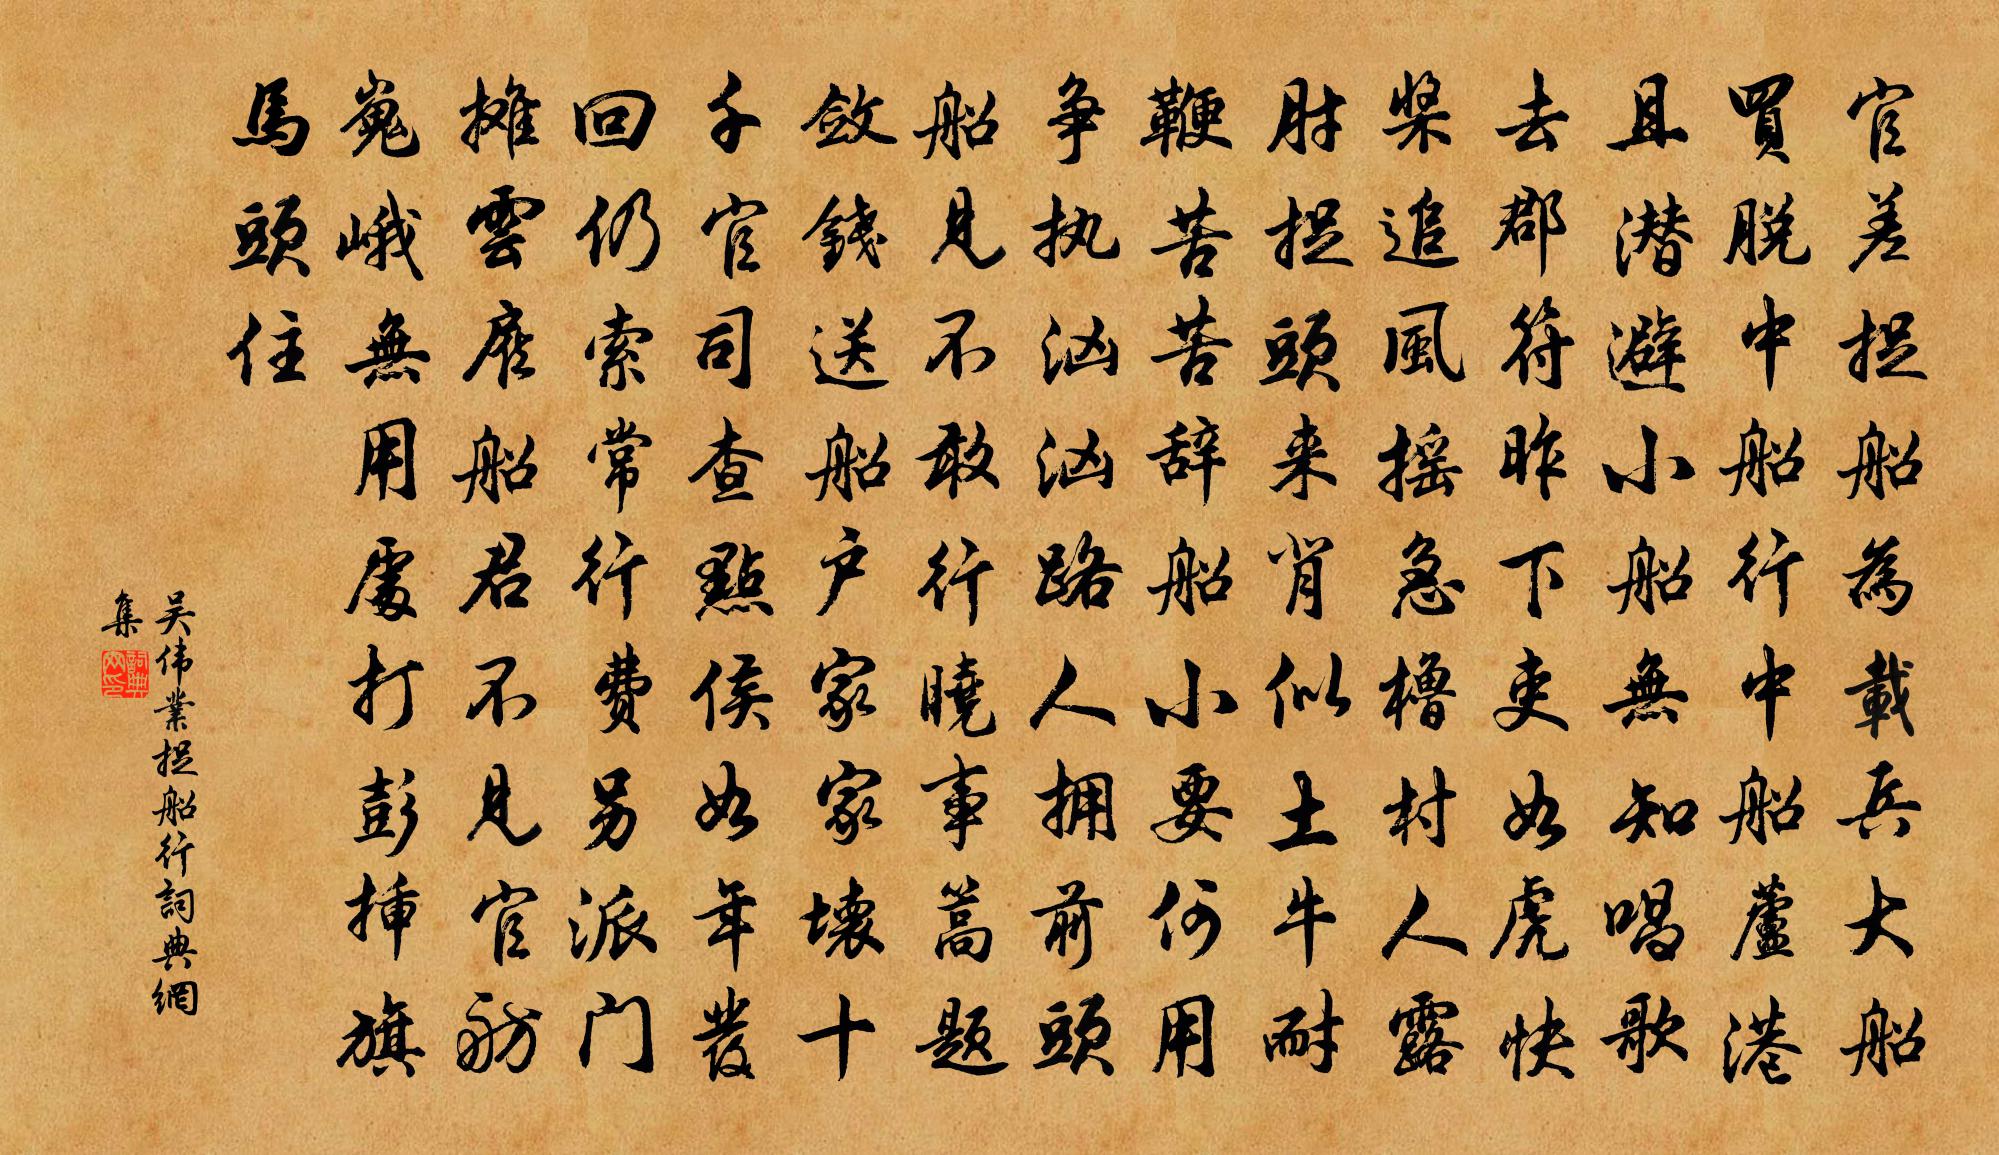 官差捉船為載兵大船
買脱中船行中船蘆港
且潜避小船無知唱歌
去郡符昨下吏如虎快
槳追風摇急櫓村人露
肘捉頭来肖似土牛耐
鞭苦苦辞船小要何用
争执汹汹路人拥前頭
船見不敢行曉事篙题
斂錢送船户家家壞十
千官司查點侯如年發
回仍索常行費另派门
攤雲雇船君不見官舫
嵬峨無用處打彭插旗
馬頭住
吴伟業捉船行詞典網
集
詞典网印